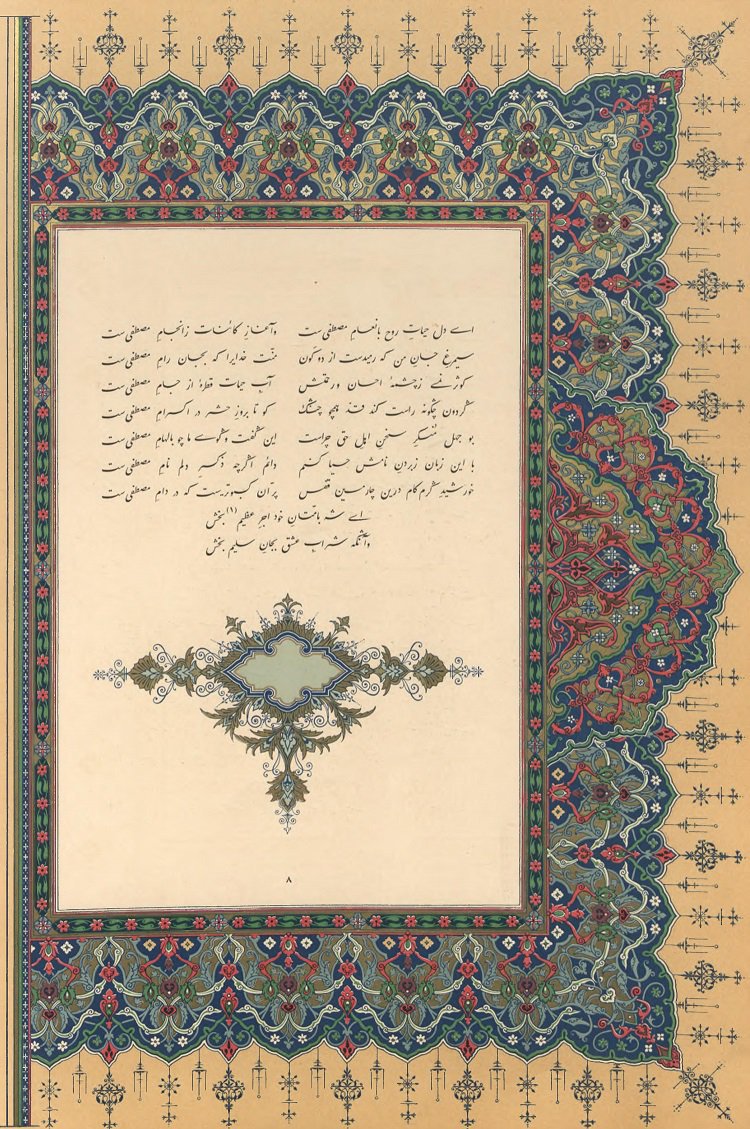 اے دل حیاتِ روح بانعامِ مصطفیٰ ست وآغازِ کائنات زانجامِ مصطفیٰ ست
سیمرغِ جانِ من که رمیدست از دو کون منّت خدایرا که بجان رامِ مصطفیٰ ست
کوثر نمے زچشمهٔ احسان ورحمتش آبِ حیات قطرهٔ از جامِ مصطفیٰ ست
گردون چگونه راست کند قد هیچو چنگ کو تا بروزِ حشر در اکرامِ مصطفیٰ ست
بو جهل منکرِ سخنِ اهلِ حق چراست این گفت وگوے ما چو بالهامِ مصطفیٰ ست
با این زبان زبردنِ نامش حیا کنم دائم اگرچه ذکرِ دلم نامِ مصطفیٰ ست
خورشید گرم کام درین چارمین قفس پرّان کبوتریست که در دامِ مصطفیٰ ست
اے شه بامّتان خود اجرِ عظیم (۱) بخش
وآنگه شرابِ عشق بجانِ سلیم بخش
۸